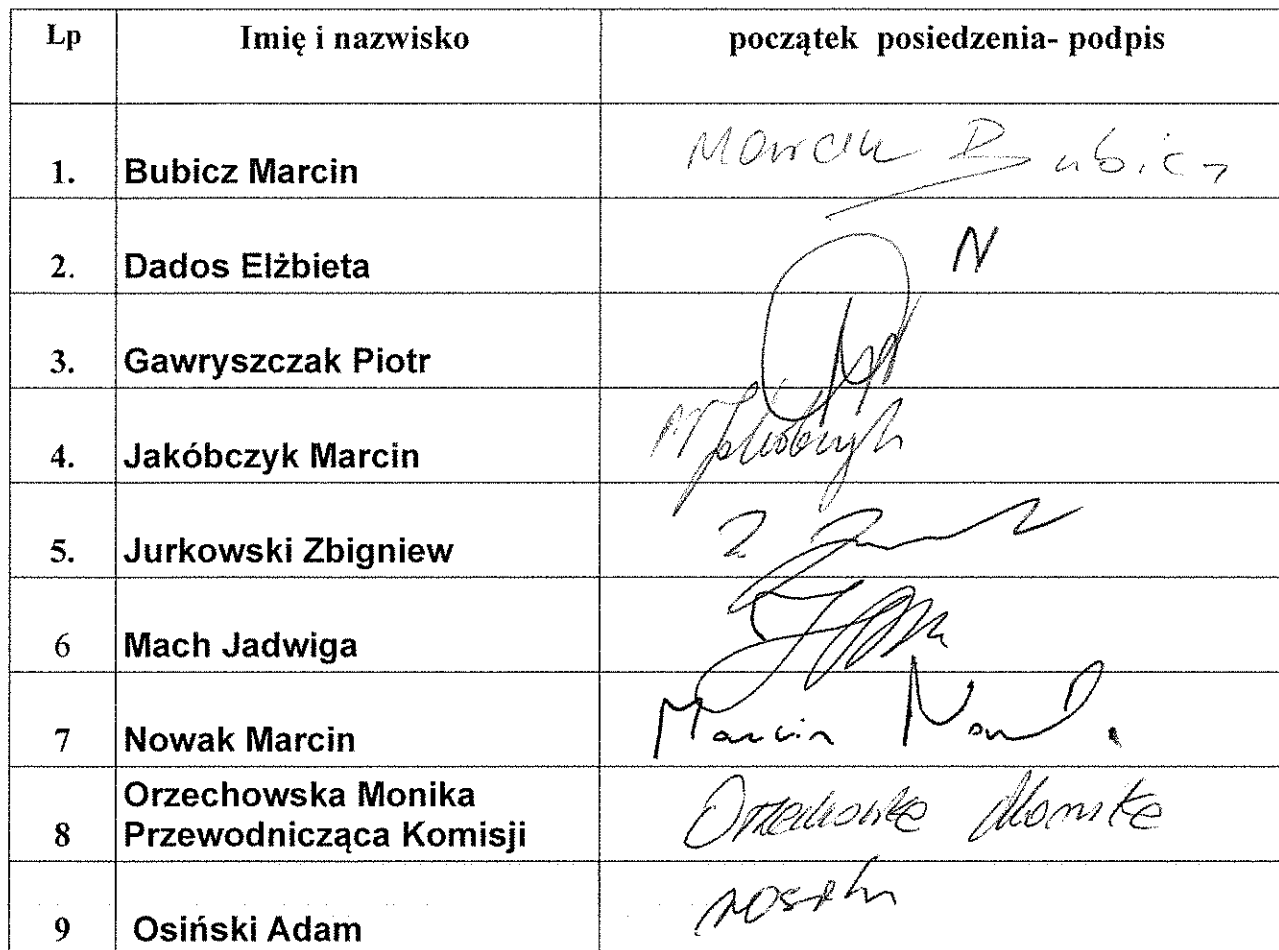 Lp Imię i nazwisko początek posiedzenia- podpis
1. Bubicz Marcin Marcin Bubicz
2. Dados Elżbieta N
3. Gawryszczak Piotr
4. Jakóbczyk Marcin M Jakóbczyk
5. Jurkowski Zbigniew
6 Mach Jadwiga
7 Nowak Marcin Marcin Nowak
Orzechowska Monika
8 Przewodnicząca Komisji Orzechowska Monika
9 Osiński Adam